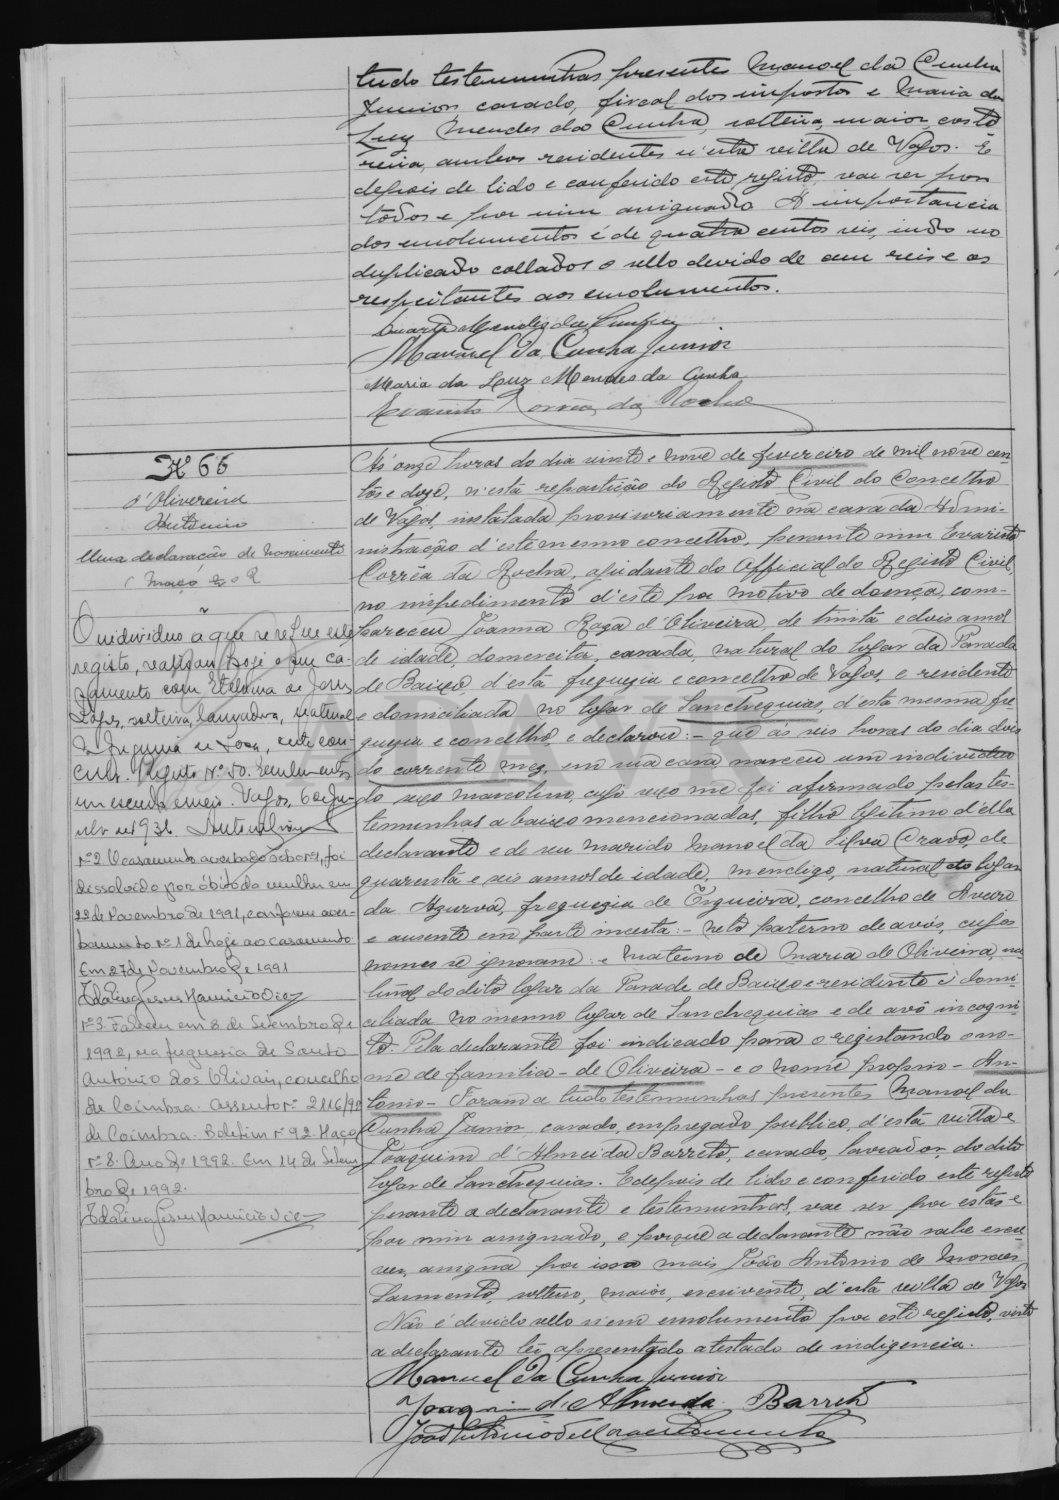 tudo testemunhas presentes Manoel da Cunha
Junior casado, fiscal dos impostos e Maria da
Luz Mendes da Cunha, solteira, maior, costu
reira, ambos residentes n'esta villa de Vagos. E
depois de lido e conferido este registo, vae ser por
todos e por mim assignado. A importancia
dos emolumentos é de quatro centos reis, indo no
duplicado collados o sello devido de cem reis e os
respeitantes aos emolumentos.
Duarte Mendes da Cunha
Manuel da Cunha Junior
Maria da Luz Mendes da Cunha
Evaristo Corrêa da Rocha
Nº 66
d'Oliveira
Antonio
Uma declaração de nascimento
Maço
O individuo a que se refere este
registo, realisou hoje o seu ca-
samento com Etelvina de Jesus
Lopes, solteira, lavradora, natural
da freguesia de Soza, deste con-
celho. Registo Nº 50. Emolumentos
um escudo e meio. Vagos, 6 de Ju-
de 1936.
Nº 2 O casamento averbado sob nº 1, foi
dissolvido por óbito da mulher em
22 de Novembro de 1991, conforme aver-
bamento nº 1 de hoje ao casamento
Em 27 de Novembro de 1991
Nº 3. Faleceu em 8 de Setembro de
1992, na freguesia de Santo
António dos Olivais, concelho
de Coimbra. Assento nº 2116/92
de Coimbra. Boletim nº 92 Maço
nº 8. Ano de 1992. Em 14 de Setem
bro de 1992.
Às onze horas do dia vinte e nove de fevereiro de mil nove cen-
tos e doze, n'esta repartição do Registo Civil do Concelho
de Vagos, installada provisoriamente na casa da Admi-
nistração d'este mesmo concelho, perante mim Evaristo
Corrêa da Rocha, ajudante do Official do Registo Civil,
no impedimento d'este por motivo de doença, com-
pareceu Joanna Roza d'Oliveira, de trinta e dois annos
de idade, domestica, casada, natural do logar da Parada
de Baixo, d'esta freguezia e concelho de Vagos, e residente
e domiciliada no logar de Sanchequias, d'esta mesma fre
guezia e concelho, e declarou: - que ás seis horas do dia dois
do corrente mez, em sua casa nasceu um individuo
do sexo masculino, cujo sexo me foi afirmado pelas tes-
temunhas abaixo mencionadas, filho legitimo d'ella
declarante e de seu marido Manoel da Silva Cravo, de
quarenta e seis annos de idade, mendigo, natural do logar
da Azurva, freguezia de Esgueira, concelho de Aveiro
e ausente em parte incerta: - neto paterno de avós, cujos
nomes se ignoram: e materno de Maria de Oliveira, na-
tural do dito logar da Parada de Baixo e residente e domi-
ciliada no mesmo logar de Sanchequias e de avô incogni-
to. Pela declarante foi indicado para o registando o no-
me de familia - de Oliveira - e o nome proprio - An-
tonio - Foram a tudo testemunhas presentes Manoel da
Cunha Junior, casado, empregado publico, d'esta villa e
Joaquim d'Almeida Barreto, casado, lavrador do dito
logar de Sanchequias. E depois de lido e conferido este registo
perante a declarante e testemunhas, vae ser por estas e
por mim assignado, e porque a declarante não sabe escre
ver, assigna por isso mais João Antonio de Moraes
Sarmento, solteiro, maior, escrivente, d'esta villa de Vagos
Não é devido sello nem emolumento por este registo, visto
a declarante ter apresentado atestado de indigencia.
Manuel da Cunha Junior
Joaquim d'Almeida Barreto
João Antonio de Moraes Sarmento